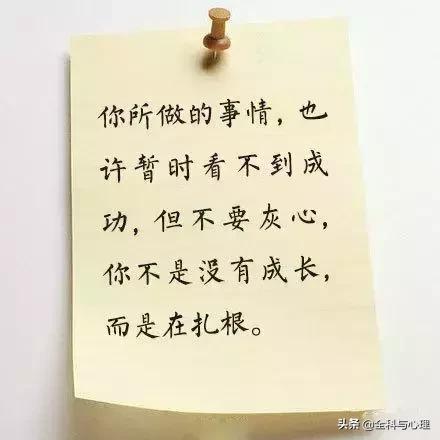 你所做的事情，也
许暂时看不到成
功，但不要灰心，
你不是没有成长，
而是在扎根。
头条 @全科与心理